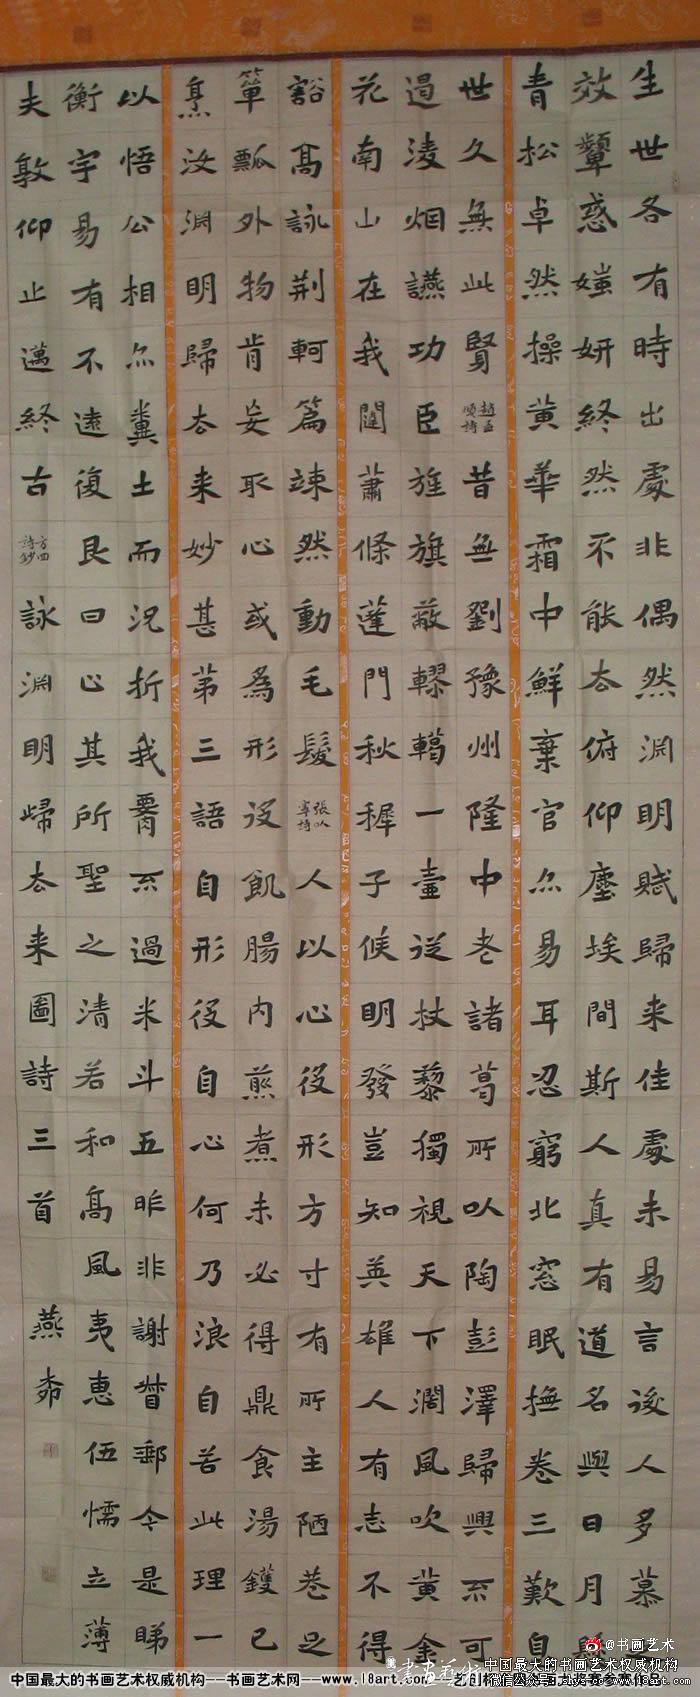 生世各有時出處非偶然淵明賦歸来佳處未易言後人多慕
效顰惑媸妍終然不能去俯仰塵埃間斯人真有道名與日月
青松卓然操黄華霜中鮮棄官亦易耳忍窮北窓眠撫卷三歎自
世久無此賢趙孟頫詩昔無劉豫州隆中老諸葛所以陶彭澤歸興不可
遏淩烟讌功臣旌旗蔽轇轕一壺從杖藜獨視天下濶風吹黄金
花南山在我闥蕭條蓬門秋稚子候明發豈知英雄人有志不得
豁高詠荆軻篇竦然動毛髮張以寧詩人以心役形方寸有所主陋巷足
簞瓢外物肯妄取心或為形役飢腸内煎煮未必得鼎食湯鑊已
烹汝淵明歸去来妙甚第三語自形役自心何乃浪自苦此理一
以悟公相亦糞土而況折我腰不過米斗五昨非謝督郵今是睇
衡宇易有不遠復艮曰止其所聖之清若和高風夷惠伍懦立薄
夫敦仰止邁終古方回詩鈔詠淵明歸去来圖詩三首 燕
@书画艺术
中国最大的书画艺术权威机构---书画艺术网---www.18art.com
中国最大的书画艺术权威机构